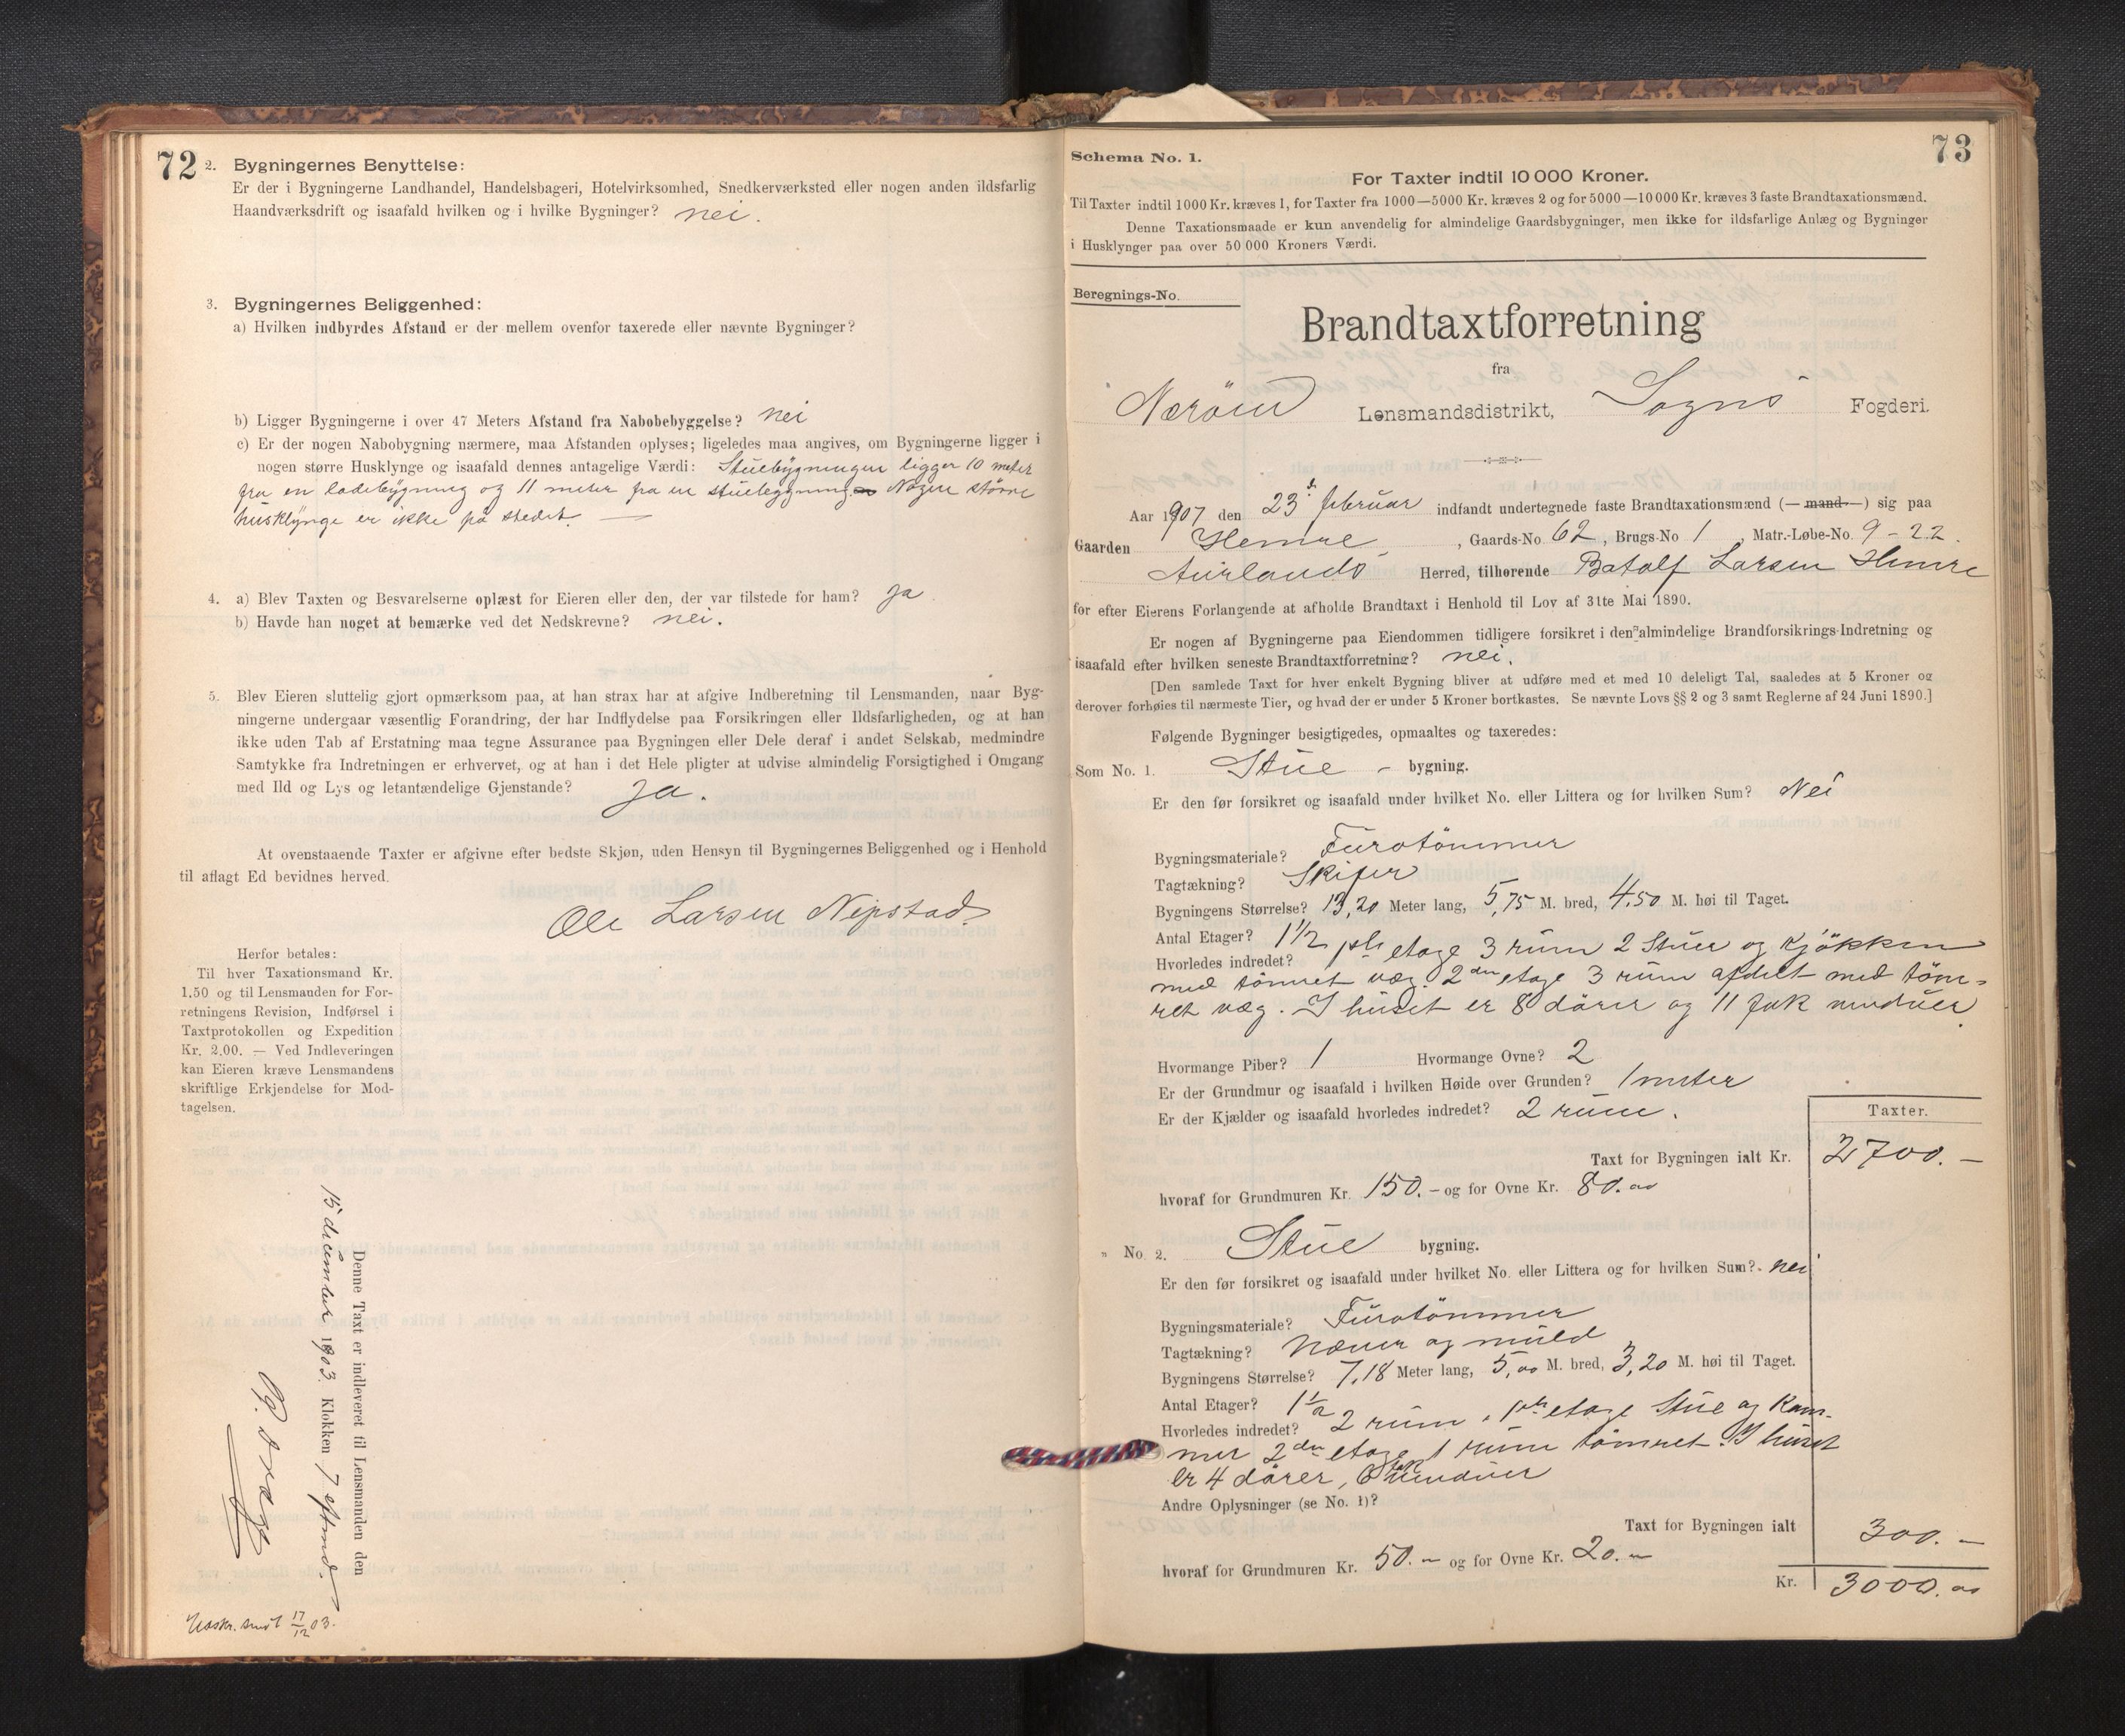 72
2. Bygningernes Benyttelse:
Er der i Bygningerne Landhandel, Handelsbageri, Hotelvirksomhed, Snedkerværksted eller nogen anden ildsfarlig
Haandværksdrift og isaafald hvilken og i hvilke Bygninger? nei.
3. Bygningernes Beliggenhed:
a) Hvilken indbyrdes Afstand er der mellem ovenfor taxerede eller nævnte Bygninger?
b) Ligger Bygningerne i over 47 Meters Afstand fra Nabobebyggelse? nei
c) Er der nogen Nabobygning nærmere, maa Afstanden oplyses; ligeledes maa angives, om Bygningerne ligger i
nogen større Husklynge og isaafald dennes antagelige Værdi: Stuebygningen ligger 10 meter
fra en ladebygning og 11 meter fra en stuebyggning. Nogen større
husklynge er ikke på stedet. —
4. a) Blev Taxten og Besvarelserne oplæst for Eieren eller den, der var tilstede for ham? ja
b) Havde han noget at bemærke ved det Nedskrevne? nei.
5. Blev Eieren sluttelig gjort opmærksom paa, at han strax har at afgive Indberetning til Lensmanden, naar Byg-
ningerne undergaar væsentlig Forandring, der har Indflydelse paa Forsikringen eller Ildsfarligheden, og at han
ikke uden Tab af Erstatning maa tegne Assurance paa Bygningen eller Dele deraf i andet Selskab, medmindre
Samtykke fra Indretningen er erhvervet, og at han i det Hele pligter at udvise almindelig Forsigtighed i Omgang
med Ild og Lys og letantændelige Gjenstande? Ja.
At ovenstaaende Taxter er afgivne efter bedste Skjøn, uden Hensyn til Bygningernes Beliggenhed og i Henhold
til aflagt Ed bevidnes herved.
Ole Larsen Nepstad
Herfor betales:
Til hver Taxationsmand Kr.
1.50 og til Lensmanden for For-
retningens Revision, Indførsel i
Taxtprotokollen og Expedition
Kr. 2.00. — Ved Indleveringen
kan Eieren kræve Lensmandens
skriftlige Erkjendelse for Mod-
tagelsen.
Denne Taxt er indleveret til Lensmanden den
15 december 1903. Klokken 7 eftmd.
Udskr. sendt 17/12 03.
73
Schema No. 1.
For Taxter indtil 10 000 Kroner.
Til Taxter indtil 1000 Kr. kræves 1, for Taxter fra 1000—5000 Kr. kræves 2 og for 5000—10 000 Kr. kræves 3 faste Brandtaxationsmænd.
Denne Taxationsmaade er kun anvendelig for almindelige Gaardsbygninger, men ikke for ildsfarlige Anlæg og Bygninger
i Husklynger paa over 50 000 Kroners Værdi.
Beregnings-No.
Brandtaxtforretning
fra
Nærøens Lensmandsdistrikt, Sogns Fogderi.
Aar 1907 den 23d februar indfandt undertegnede faste Brandtaxationsmænd (—mand—) sig paa
Gaarden Hemre, Gaards-No. 62, Brugs-No 1, Matr.-Løbe-No. 9 - 22.
Aurlands Herred, tilhørende Batolf Larsen Himre
for efter Eierens Forlangende at afholde Brandtaxt i Henhold til Lov af 31te Mai 1890.
Er nogen af Bygningerne paa Eiendommen tidligere forsikret i den almindelige Brandforsikrings-Indretning og
isaafald efter hvilken seneste Brandtaxtforretning? nei.
[Den samlede Taxt for hver enkelt Bygning bliver at udføre med et med 10 deleligt Tal, saaledes at 5 Kroner og
derover forhøies til nærmeste Tier, og hvad der er under 5 Kroner bortkastes. Se nævnte Lovs §§ 2 og 3 samt Reglerne af 24 Juni 1890.]
Følgende Bygninger besigtigedes, opmaaltes og taxeredes:
Som No. 1. Stue - bygning.
Er den før forsikret og isaafald under hvilket No. eller Littera og for hvilken Sum? Nei
Bygningsmateriale? Furotömmer
Tagtækning? Skifer
Bygningens Størrelse? 13,20 Meter lang, 5,75 M. bred, 4.50 M. høi til Taget.
Antal Etager? 1 1/2
Hvorledes indredet? 1ste etage 3 rum 2 Stuer og Kjökken
med tömret væg. 2den etage 3 rum afdelt med töm-
ret væg. I huset er 8 dörer og 11 fak vinduer.
Hvormange Piber? 1 Hvormange Ovne? 2
Er der Grundmur og isaafald i hvilken Høide over Grunden? 1 meter
Er der Kjælder og isaafald hvorledes indredet? 2 rum.
Taxter.
Taxt for Bygningen ialt Kr. 2700. —
hvoraf for Grundmuren Kr. 150. - og for Ovne Kr. 80.00
„ No. 2. Stue bygning.
Er den før forsikret og isaafald under hvilket No. eller Littera og for hvilken Sum? nei
Bygningsmateriale? Furotömmer
Tagtækning? Næver og muld
Bygningens Størrelse? 7,18 Meter lang, 5,00 M. bred, 3,20 M. høi til Taget.
Antal Etager? 1 1/2
Hvorledes indredet? 2 rum. 1ste etage Stue og Kam-
mer 2den etage 1 rum tömret. I huset
er 4 dörer, 6 fak vinduer
Andre Oplysninger (se No. 1)?
Taxt for Bygningen ialt 300. —
hvoraf for Grundmuren Kr. 50. — og for Ovne Kr. 20. —
Kr. 3000.00